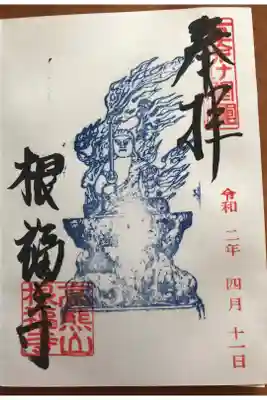 奉拝
令和 二年 四月 十一日
根福寺
高熊山
根福寺